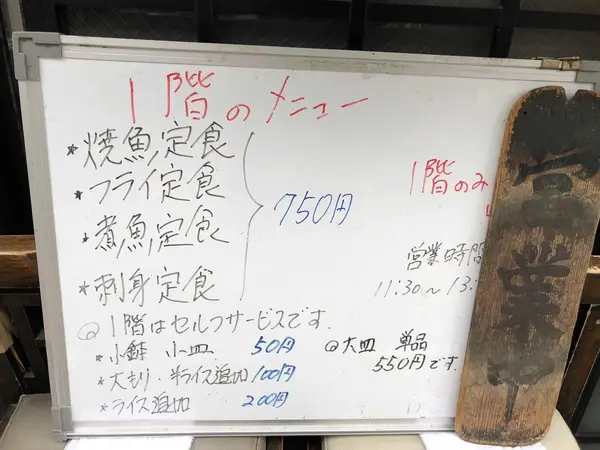 1階のメニュー
★焼魚定食
★フライ定食
★煮魚定食
★刺身定食
750円
◎1階はセルフサービスです.
★小鉢 小皿 50円
★大もり・半ライス追加 100円
★ライス追加 200円
1階のみ
営業時間
11:30～13:
◎大皿 単品
550円です.
営業中